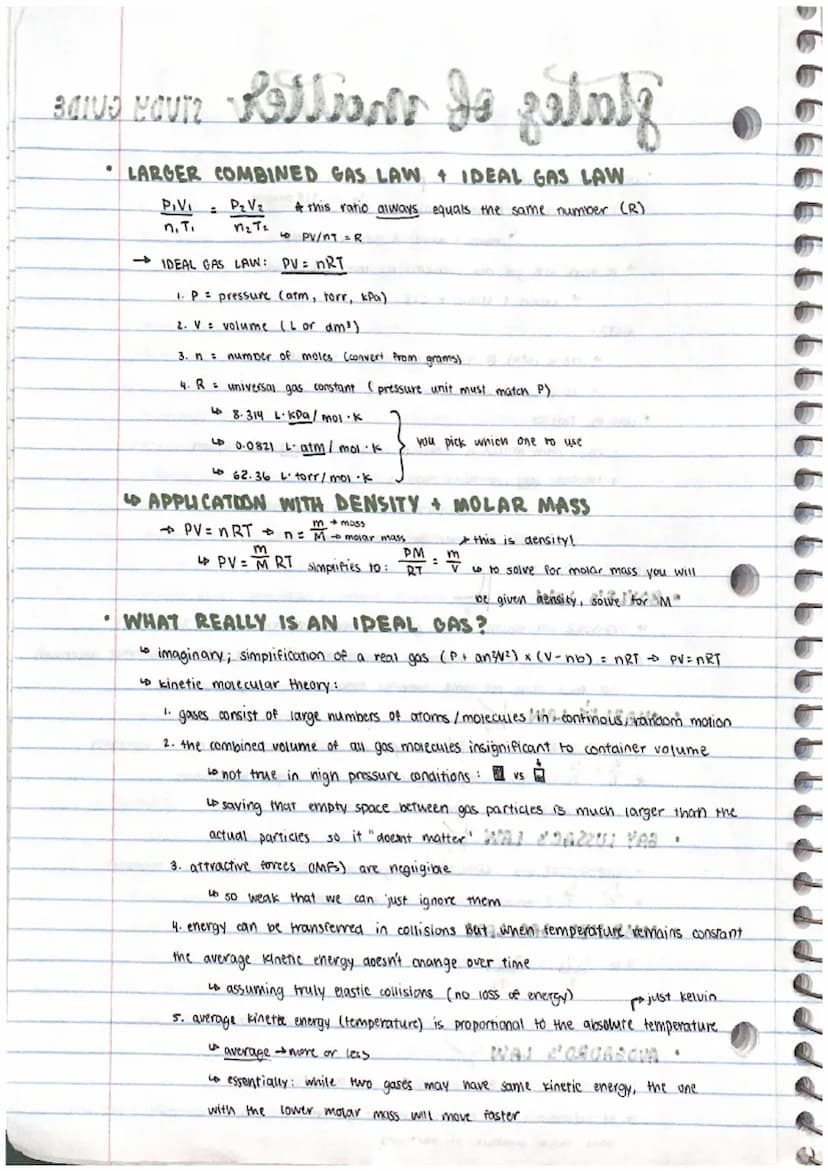 • LARGER COMBINED GAS LAW + IDEAL GAS LAW
P₁V₁/n₁T₁ = P₂V₂/n₂T₂ * this ratio always equals the same number (R)
↳ PV/nT = R
→ IDEAL GAS LAW: PV = nRT
1. P = pressure (atm, torr, kPa)
2. V = volume (L or dm³)
3. n = number of moles (convert from grams)
4. R = universal gas constant (pressure unit must match P)
↳ 8.314 L·kPa/mol·K
↳ 0.0821 L·atm/mol·K } you pick which one to use
↳ 62.36 L·torr/mol·K
↳ APPLICATION WITH DENSITY + MOLAR MASS
→ PV = nRT → n = m/M → mass → molar mass * this is density!
↳ PV = m/M RT simplifies to: PM/RT = m/V ↳ to solve for molar mass you will
be given density, solve for "M"
• WHAT REALLY IS AN IDEAL GAS?
↳ imaginary; simplification of a real gas (P + an²/V²) × (V - nb) = nRT → PV = nRT
↳ kinetic molecular theory:
1. gases consist of large numbers of atoms/molecules in continous, random motion
2. the combined volume of all gas molecules insignificant to container volume
↳ not true in high pressure conditions: vs
↳ saying that empty space between gas particles is much larger than the
actual particles so it "doesnt matter"
3. attractive forces (IMFs) are negligible
↳ so weak that we can just ignore them
4. energy can be transferred in collisions but, when temperature remains constant
the average kinetic energy doesn't change over time
↳ assuming truly elastic collisions (no loss of energy) → just kelvin
5. average kinetic energy (temperature) is proportional to the absolute temperature
↳ average → more or less
↳ essentially: while two gases may have same kinetic energy, the one
with the lower molar mass will move faster
states of matter STUDY GUIDE
GAY LUSSAC'S LAW
AVOGADRO'S LAW